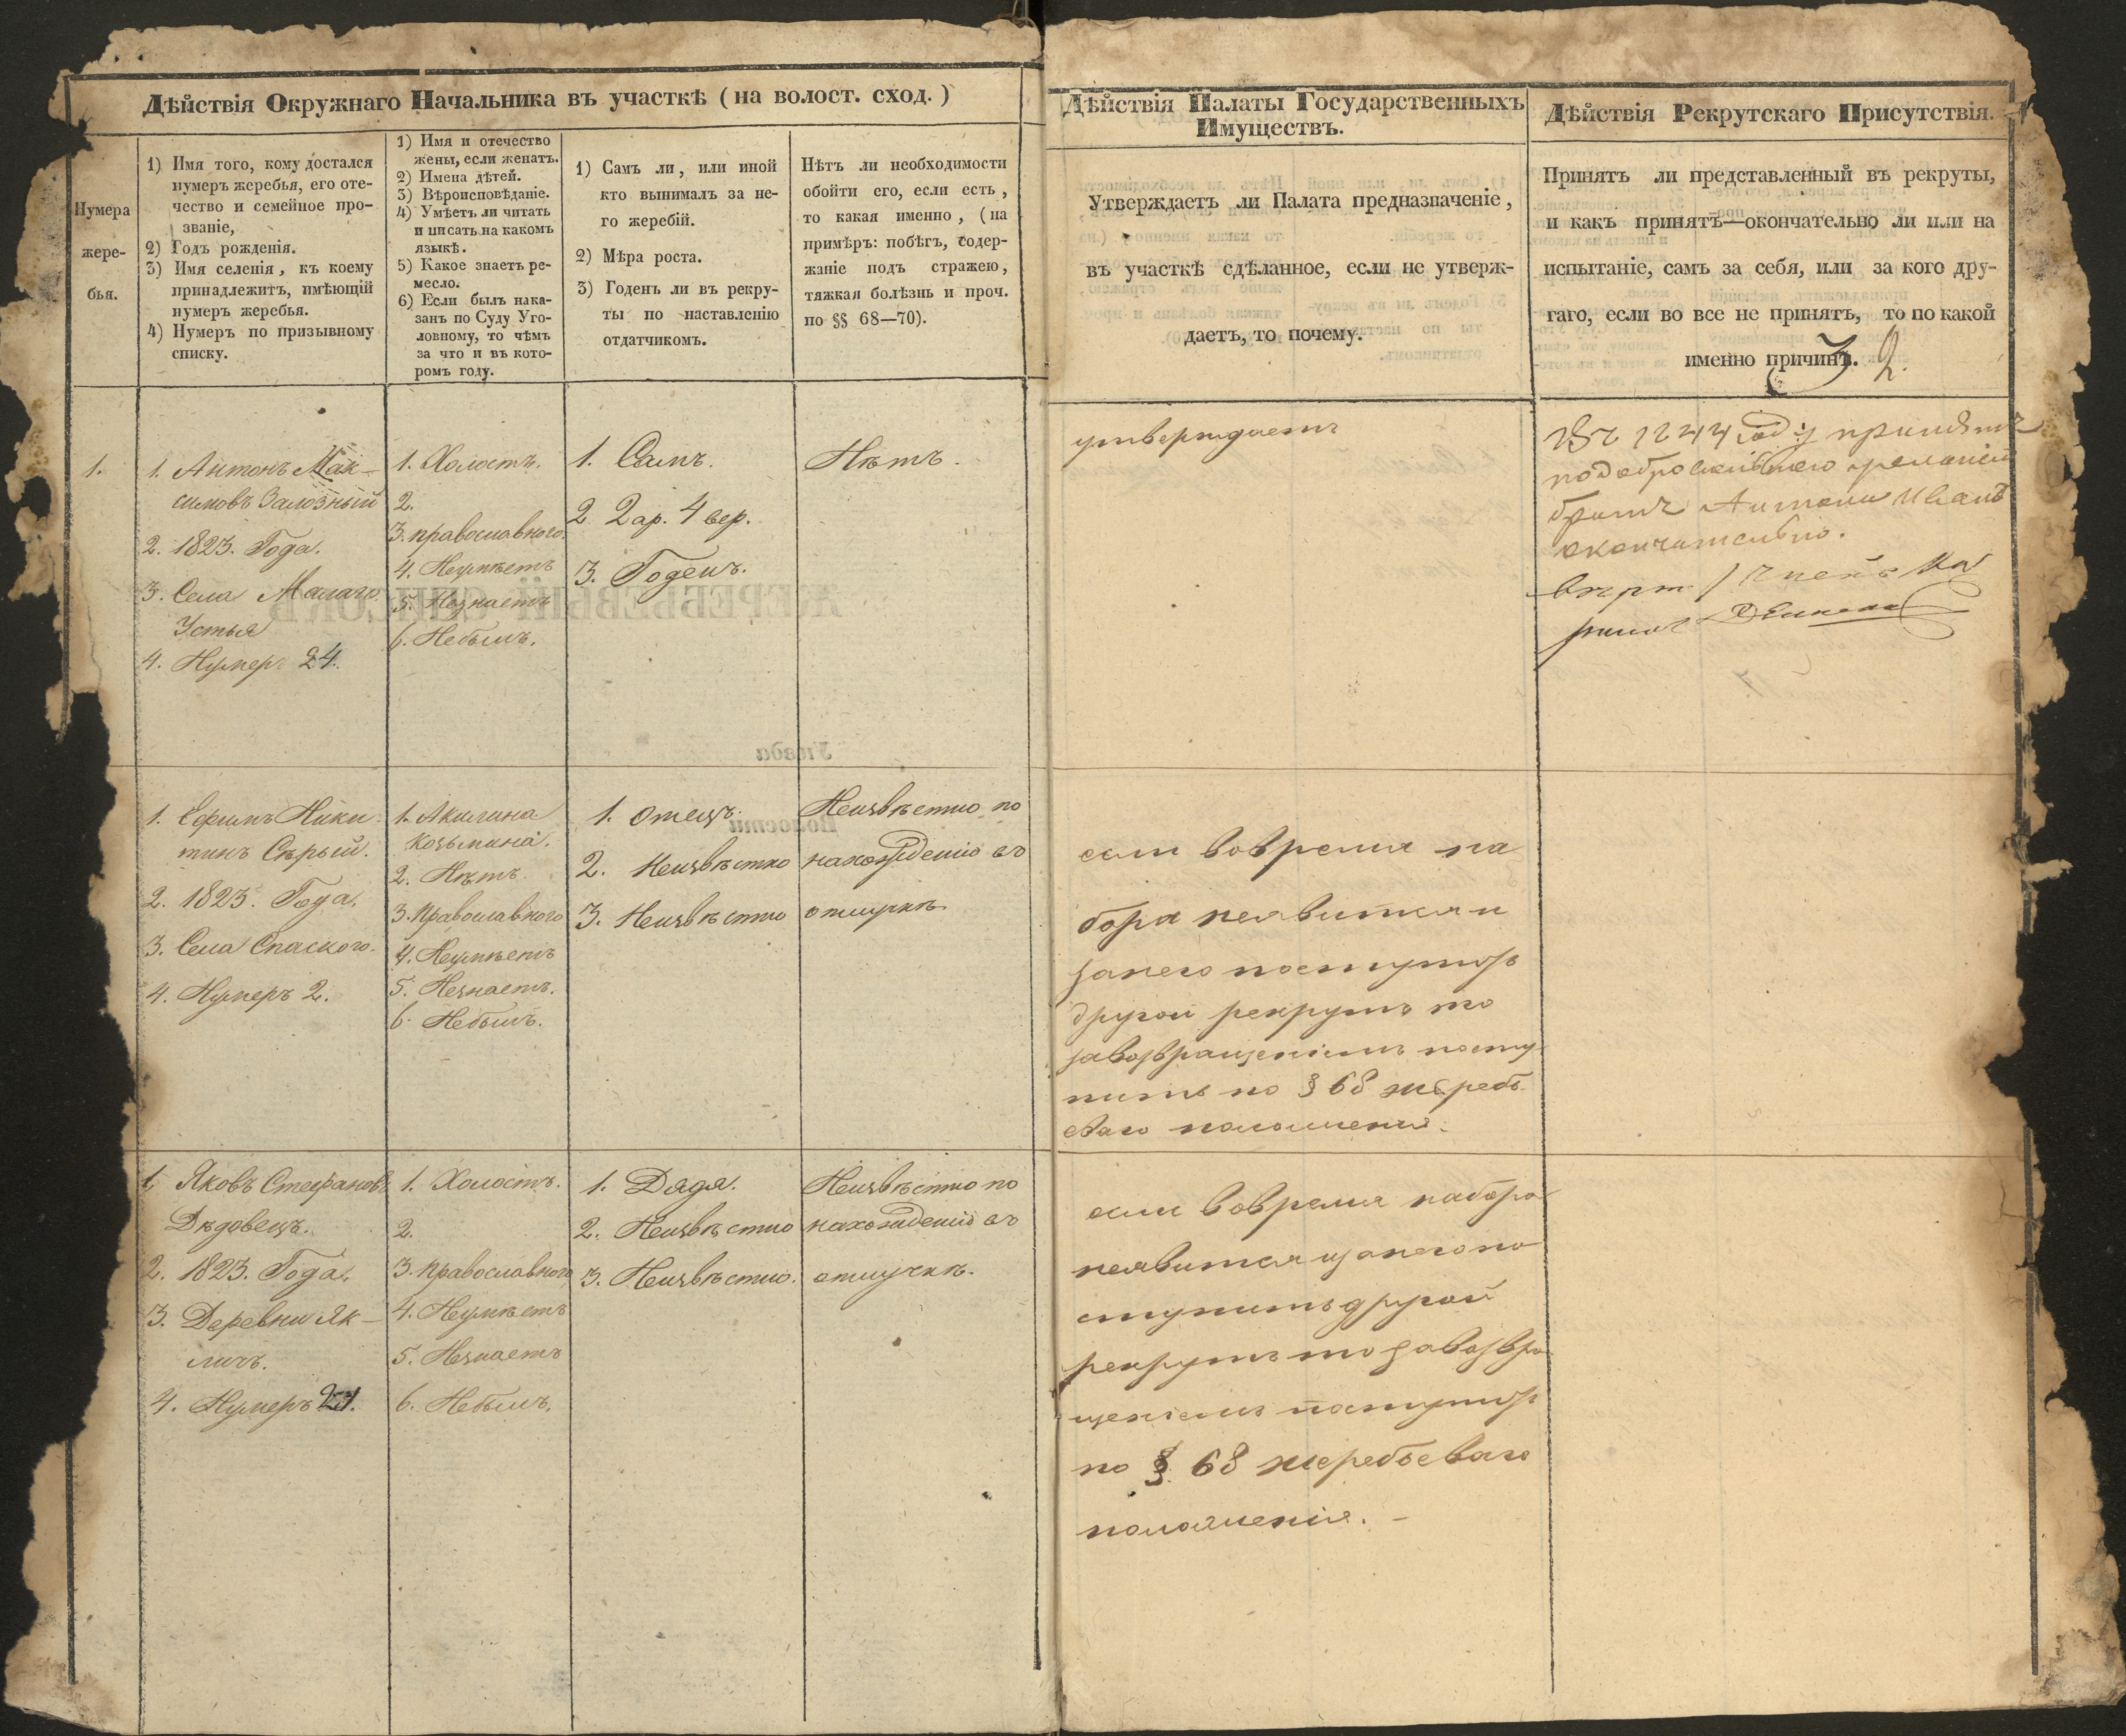 Дѣйствія Окружнаго Начальника въ участкѣ (на волост. сход.)
Нумера
жере-
бья.
1) Имя того, кому достался
нумеръ жеребья, его оте-
чество и семейное про-
званіе,
2) Годъ рожденія.
3) Имя селенія, къ коему
принадлежитъ, имѣющій
нумеръ жеребья.
4) Нумеръ по призывному
списку.
1) Имя и отечество
жены, если женатъ.
2) Имена дѣтей.
3) Вѣроисповѣданіе.
4) Умѣетъ ли читать
и писать на какомъ
языкѣ.
5) Какое знаетъ ре-
месло.
6) Если былъ нака-
занъ по Суду Уго-
ловному, то чѣмъ
за что и въ кото-
ромъ году.
1) Самъ ли, или иной
кто вынималъ за не-
го жеребій.
2) Мѣра роста.
3) Годенъ ли въ рекру-
ты по наставленію
отдатчикомъ.
Нѣтъ ли необходимости
обойти его, если есть,
то какая именно, (на
примѣръ: побѣгъ, содер-
жаніе подъ стражею,
тяжкая болѣзнь и проч.
по §§ 68—70).
1.
1. Антонъ Мак-
симовъ Залозный
2. 1823. Года.
3. Села Малаго
Устья
4. Нумеръ 24.
1. Холостъ.
2.
3. православного.
4. Неумѣетъ
5. Незнаетъ
6. Небылъ.
1. Самъ.
2 2 ар. 4 вер.
3. Годенъ.
Нѣтъ.
1. Ефимъ Ники-
тинъ Сѣрый.
2. 1823. Года.
3. Села Спаского.
4. Нумеръ 2.
1. Акилина
Козьмина.
2. Нѣтъ
3. Православного
4. Неумѣетъ
5. Незнаетъ.
6. Небылъ.
1. Отецъ.
2. Неизвѣстно
3. Неизвѣстно
Неизвѣстно по
нахожденію въ
отлучкѣ
1. Яковъ Стефановъ
Дѣдовецъ.
2. 1823. Года.
3. Деревни Як-
личъ.
4. Нумеръ 21.
1. Холостъ.
2.
3. Православного
4. Неумѣетъ
5. Незнаетъ
6. Небылъ.
1. Дядя.
2. Неизвѣстно
3. Неизвѣстно.
Неизвѣстно по
нахожденію въ
отлучкѣ.
Дѣйствія Палаты Государственныхъ
Имуществъ.
Утверждаетъ ли Палата предназначеніе,
въ участкѣ сдѣланное, если не утверж-
даетъ, то почему.
утверждаетъ
если вовремя на
бора неявится и
занего поступитъ
другой рекрутъ то
завозвращеніемъ посту
питъ по § 68 жеребь
еваго положенія.
если вовремя набора
неявится изанего по
ступитъ другой
рекрутъ то завозвра
щеніемъ поступитъ
по § 68 жеребьеваго
положенія. -
Дѣйствія Рекрутскаго Присутствія.
Принятъ ли представленный въ рекруты,
и какъ принятъ—окончательно ли или на
испытаніе, самъ за себя, или за кого дру-
гаго, если во все не принятъ, то по какой
именно причинѣ.
32.
Въ 1844 году принятъ
братъ Антона Иванъ
окончательно.